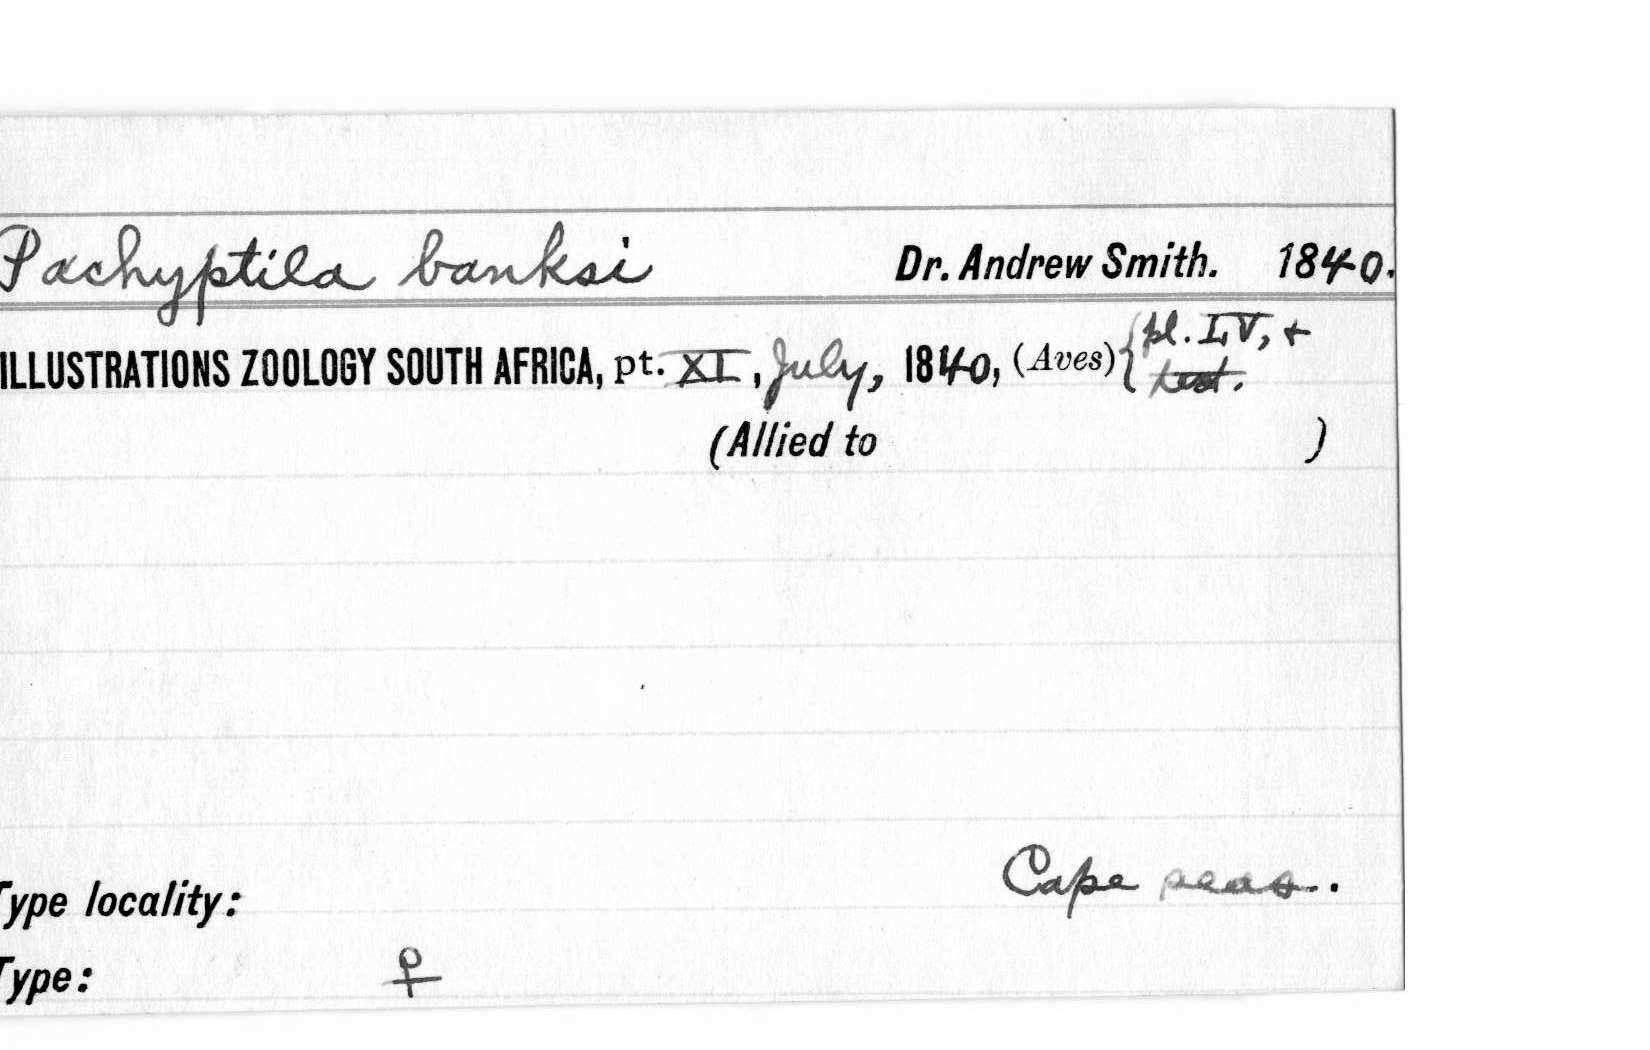 Pachyptila banksi Dr. Andrew Smith. 1840.
ILLUSTRATIONS ZOOLOGY SOUTH AFRICA, pt. XI, July, 1840, (Aves) { pl. LV, +
text.
(Allied to )
Type locality: Cape seas..
Type: ♀